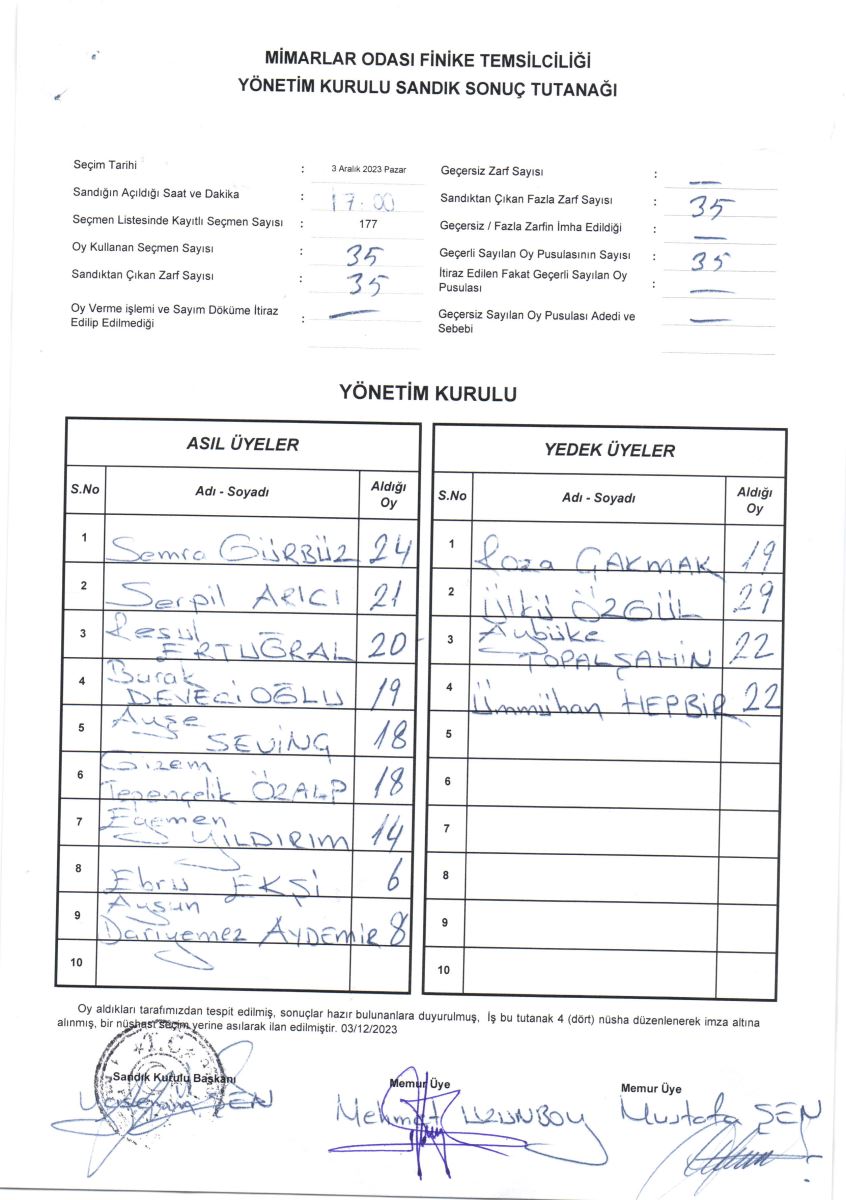 MİMARLAR ODASI FİNİKE TEMSİLCİLİĞİ
YÖNETİM KURULU SANDIK SONUÇ TUTANAĞI
Seçim Tarihi : 3 Aralık 2023 Pazar
Sandığın Açıldığı Saat ve Dakika : 17:00
Seçmen Listesinde Kayıtlı Seçmen Sayısı : 177
Oy Kullanan Seçmen Sayısı : 35
Sandıktan Çıkan Zarf Sayısı : 35
Oy Verme işlemi ve Sayım Döküme İtiraz
Edilip Edilmediği : —
Geçersiz Zarf Sayısı : —
Sandıktan Çıkan Fazla Zarf Sayısı : 35
Geçersiz / Fazla Zarfin İmha Edildiği : —
Geçerli Sayılan Oy Pusulasının Sayısı : 35
İtiraz Edilen Fakat Geçerli Sayılan Oy
Pusulası : —
Geçersiz Sayılan Oy Pusulası Adedi ve
Sebebi —
YÖNETİM KURULU
ASIL ÜYELER
S.No Adı - Soyadı Aldığı
Oy
1 Semra GÜRBÜZ 24
2 Serpil ARICI 21
3 Resul
ERTUĞRAL 20
4 Burak
DEVECİOĞLU 19
5 Ayşe
SEVİNÇ 18
6 Gizem
Tepençelik ÖZALP 18
7 Egemen
YILDIRIM 14
8 Ebru EKŞİ 6
9 Aysun
Dariyemez AYDEMİR 8
10
YEDEK ÜYELER
S.No Adı - Soyadı Aldığı
Oy
1 Roza ÇAKMAK 19
2 Ülkü ÖZGÜL 29
3 Aybüke
TOPALŞAHİN 22
4 Ümmühan HEPBİR 22
5
6
7
8
9
10
Oy aldıkları tarafımızdan tespit edilmiş, sonuçlar hazır bulunanlara duyurulmuş, İş bu tutanak 4 (dört) nüsha düzenlenerek imza altına
alınmış, bir nüshası seçim yerine asılarak ilan edilmiştir. 03/12/2023
T.C.
Sandık Kurulu Başkanı
ŞEN
Memur Üye
Mehmet UZUNBOY
Memur Üye
Mustafa ŞEN